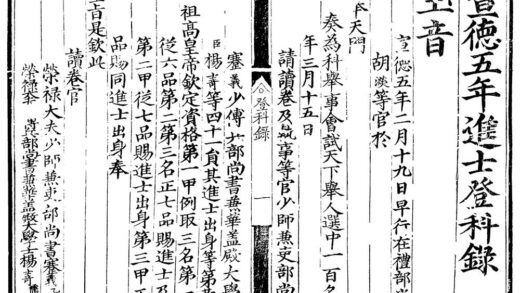 宣德五年進士登科錄
玉音
宣德五年二月十九日早行在禮部尚
胡濙等官於
奉天門
奏為科舉事會試天下舉人選中一百名
年三月十五日
請讀卷及執事等官少師兼吏部尚
登科錄 一
蹇義少傅工部尚書兼華蓋殿大學
臣楊 等四十一員其進士出身等第
祖高皇帝欽定資格第一甲例取三名第
從六品第二第三名正七品賜進士及
第二甲從七品賜進士出身第三甲正
品賜同進士出身奉
旨是欽此
讀卷官
榮祿大夫少師兼吏部尚書蹇義
榮祿 部尚書兼華蓋殿大學士楊